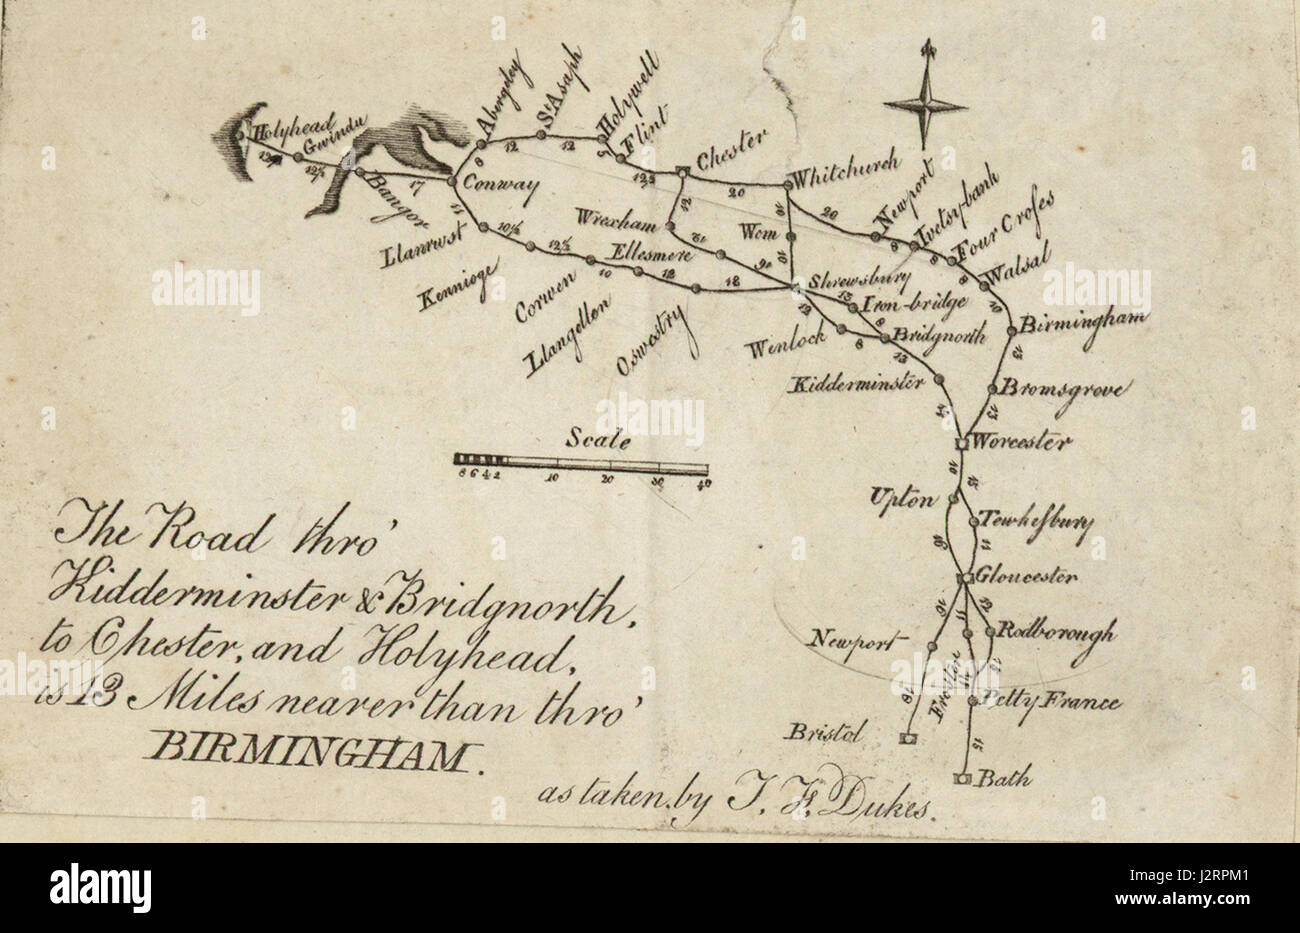 Holyhead
Gwindu
Bangor
Conway
Abergeley
St Asaph
Holywell
Flint
Chester
Whitchurch
Newport
Ivetsy-bank
Four Crosses
Walsal
Birmingham
Bromsgrove
Worcester
Llanrwst
Kennioge
Corwen
Llangellen
Oswestry
Ellesmere
Wrexham
Wem
Shrewsbury
Iron-bridge
Bridgnorth
Winlock
Kidderminster
Upton
Tewkesbury
Gloucester
Newport
Rodborough
Froster
Petty France
Bristol
Bath
17
8
12
12
5
12½
20
12
12
16
10
20
8
8
8
10
13
13
11
10½
12½
10
12
18
13
8
12
8
13
14
10
15
16
11
16
11
12
18
15
Scale
8 6 4 2 10 20 30 40
The Road thro'
Kidderminster & Bridgnorth,
to Chester, and Holyhead,
is 13 Miles nearer than thro'
BIRMINGHAM.
as taken by T. F. Dukes.
alamy
alamy stock photo
Image ID: J2RPM1
www.alamy.com